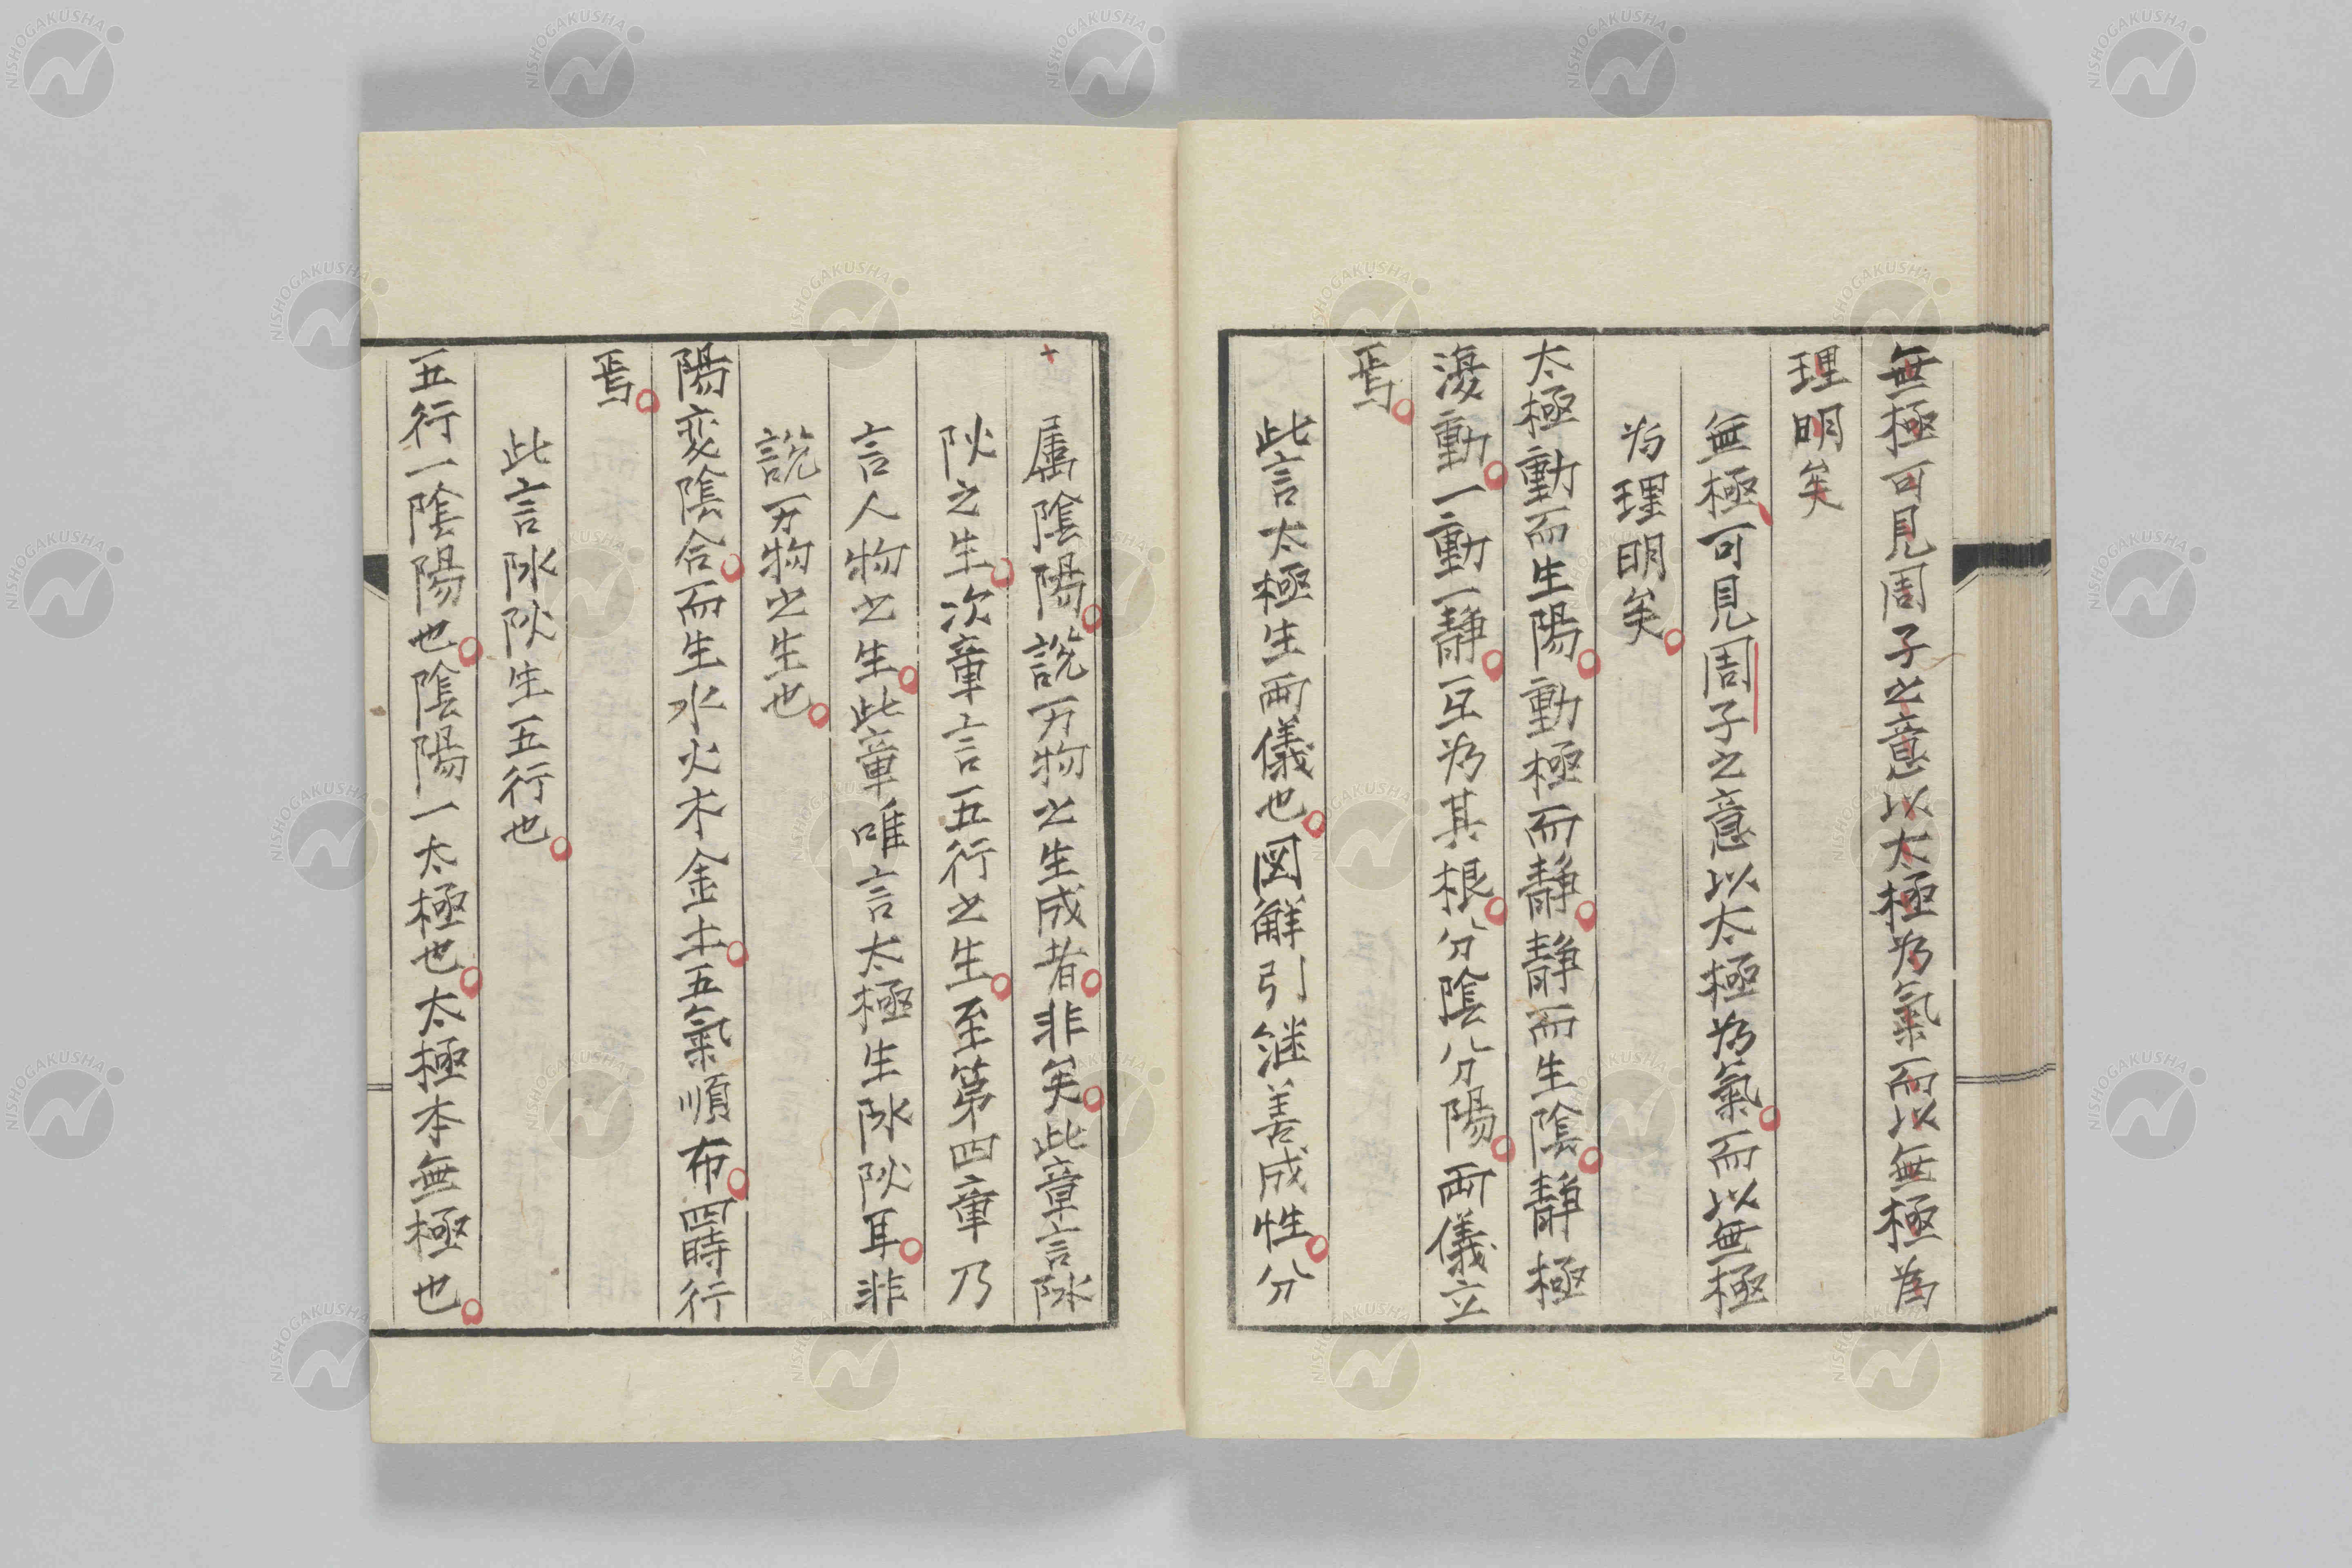 無極可見周子之意以太極為氣而以無極為
理明矣
無極可見周子之意以太極為氣而以無極
為理明矣
太極動而生陽動極而静静而生陰静極
復動一動一静互為其根分陰分陽両儀立
焉
此言太極生両儀也図觧引継善成性分
属陰陽説万物之生成者非矣此章言阥
阦之生次章言五行之生至第四章乃
言人物之生此章唯言太極生阥阦耳非
説万物之生也
陽変陰合而生水火木金土五氣順布四時行
焉
此言阥阦生五行也
五行一陰陽也陰陽一太極也太極本無極也
NISHOGAKUSHA